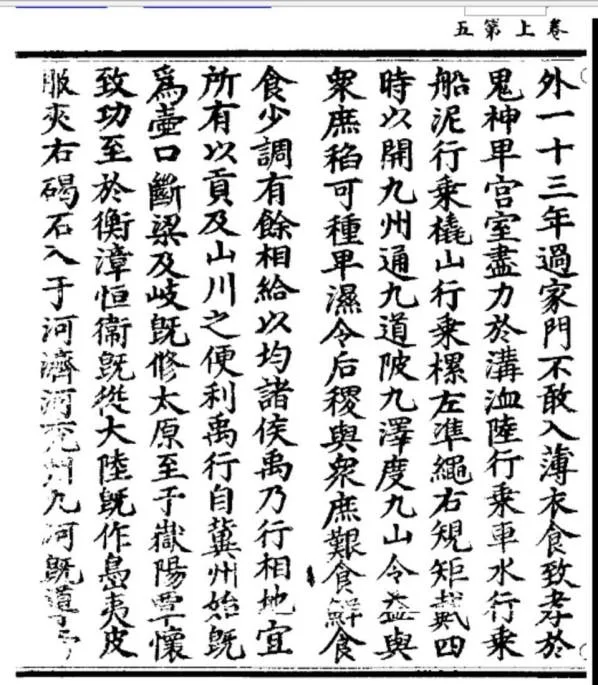 卷上第五
外一十三年過家門不敢入薄衣食致孝於
鬼神卑宫室盡力於溝洫陸行乗車水行乗
船泥行乗橇山行乗樏左凖繩右規矩戴四
時以開九州通九道陂九澤度九山令益與
衆庶稻可種卑濕令后稷與衆庶艱食鮮食
食少調有餘相給以均諸侯禹乃行相地宜
所有以貢及山川之便利禹行自冀州始旣
爲壷口斷梁及岐旣修太原至于嶽陽覃懷
致功至於衡漳恒衞旣從大陸旣作島夷皮
服夾右碣石入于河濟河兖州九河旣道